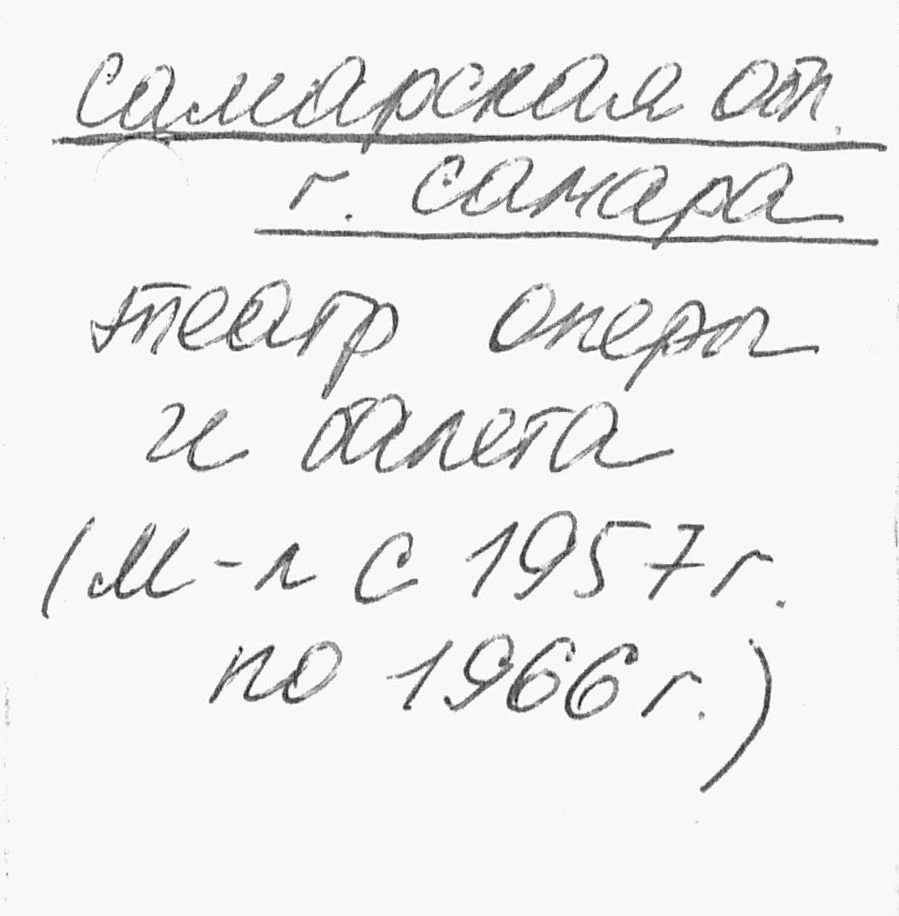 Самарская обл.
г. Самара
театр оперы
и балета
(М-л с 1957 г.
по 1966 г.)